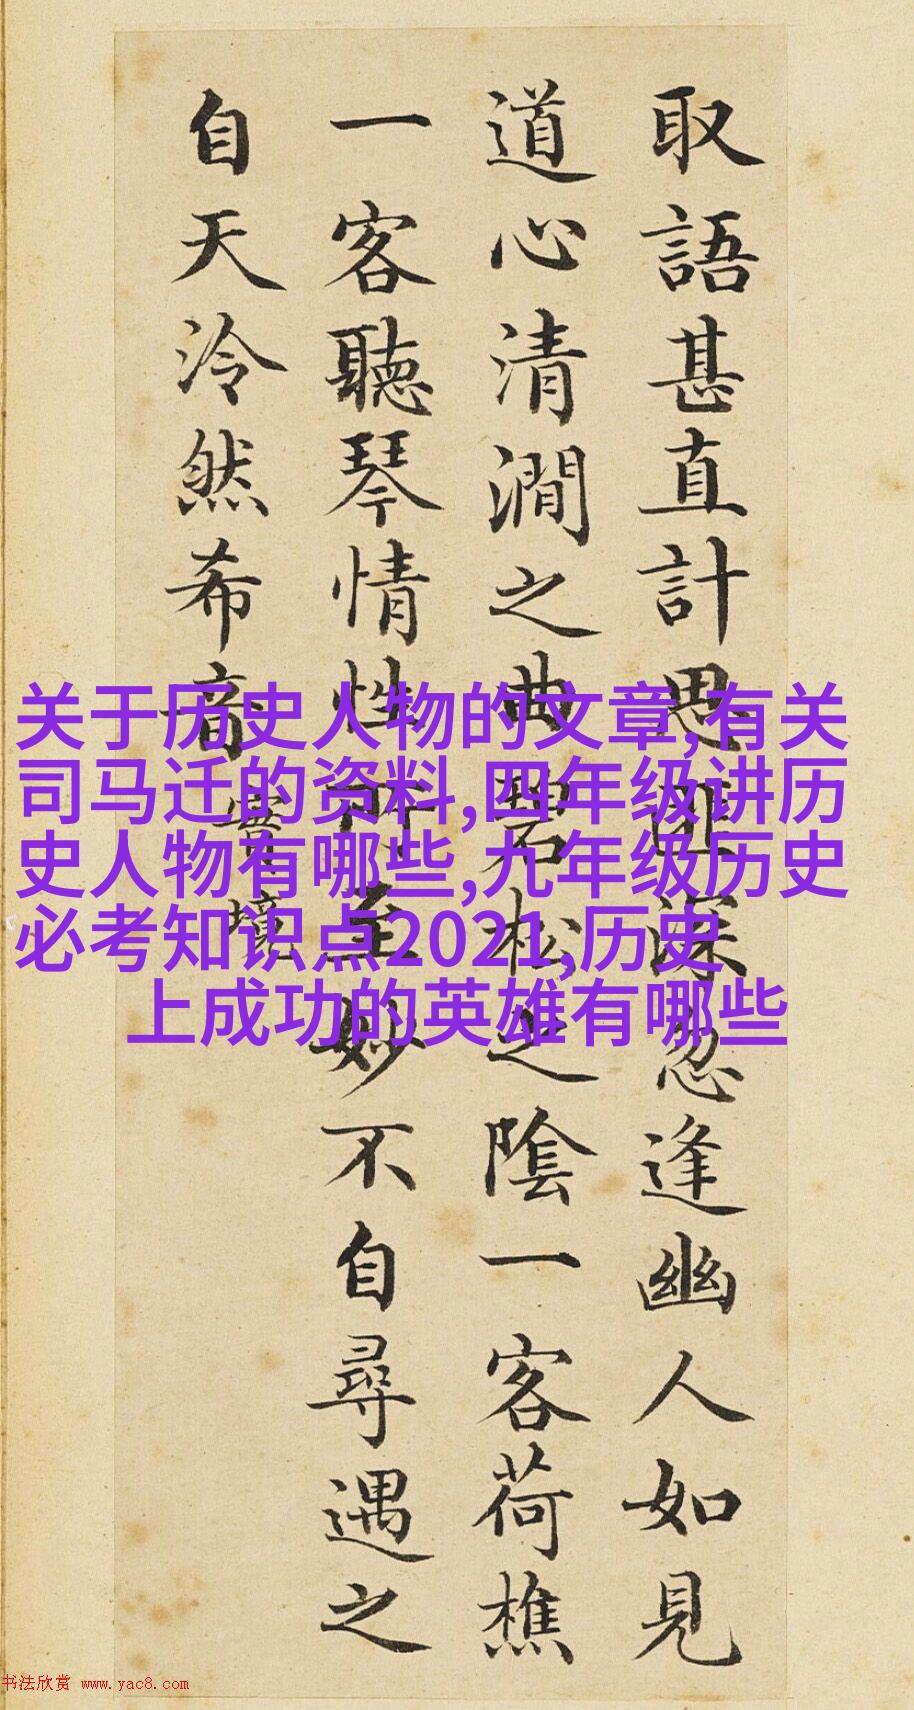 取語甚直計思匪深忽逢幽人如見
道心清澗之曲碧松之陰一客荷樵
一客聽琴情性所至妙不自尋遇之
自天泠然希音
實境
关于历史人物的文章,有关
司马迁的资料,四年级讲历
史人物有哪些,九年级历史
必考知识点2021,历史
上成功的英雄有哪些
书法欣赏 www.yac8.com